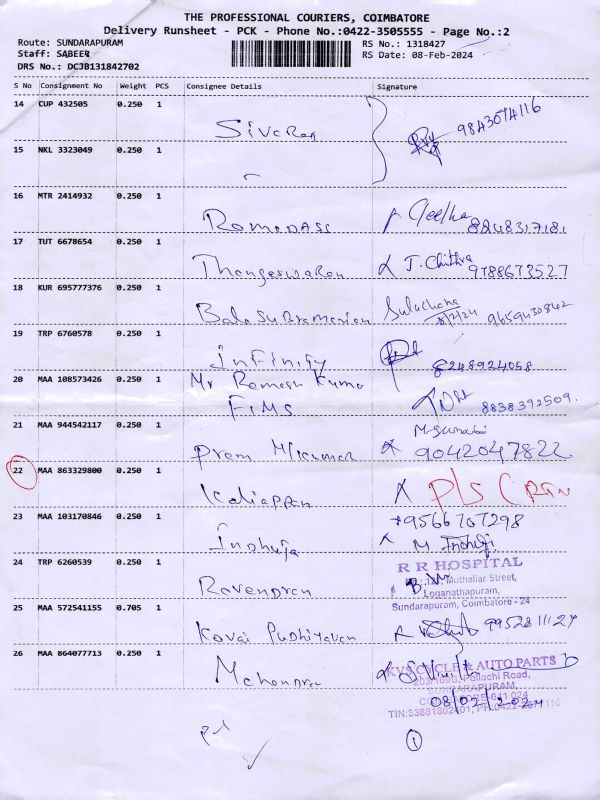 THE PROFESSIONAL COURIERS, COIMBATORE
Delivery Runsheet - PCK - Phone No.:0422-3505555 - Page No.:2
Route: SUNDARAPURAM
RS No.: 1318427
Staff: SABEER
RS Date: 08-Feb-2024
DRS No.: DCJB131842702
S No Consignment No Weight PCS Consignee Details Signature
14 CUP 432505 0.250 1
Sivaran 9843074116
15 NKL 3323049 0.250 1
16 MTR 2414932 0.250 1
Ramadass Geetha 8248317181
17 TUT 6678654 0.250 1
Thangeswaran T. Chithra 9788673527
18 KUR 695777376 0.250 1
Balasubramanian Sulochana 8/2/24 9659430842
19 TRP 6760578 0.250 1
Infinity 8248924058
20 MAA 108573426 0.250 1
Mr Ramesh Kumar
FIMS 8838392509.
21 MAA 944542117 0.250 1
Prem 9042047822
22 MAA 863329800 0.250 1
Kaliappan X Pls
23 MAA 103170846 0.250 1
9566707298
Indhuja M
24 TRP 6260539 0.250 1
R R HOSPITAL
Muthaliar Street,
Loganathapuram,
Sundarapuram, Coimbatore - 24
Ravendran
25 MAA 572541155 0.705 1
Kovai Pudhiyavan 9952811127
26 MAA 864077713 0.250 1
Mahendra
CYCLE & AUTO PARTS
Pollachi Road,
SUNDARAPURAM,
08/02/2024
1